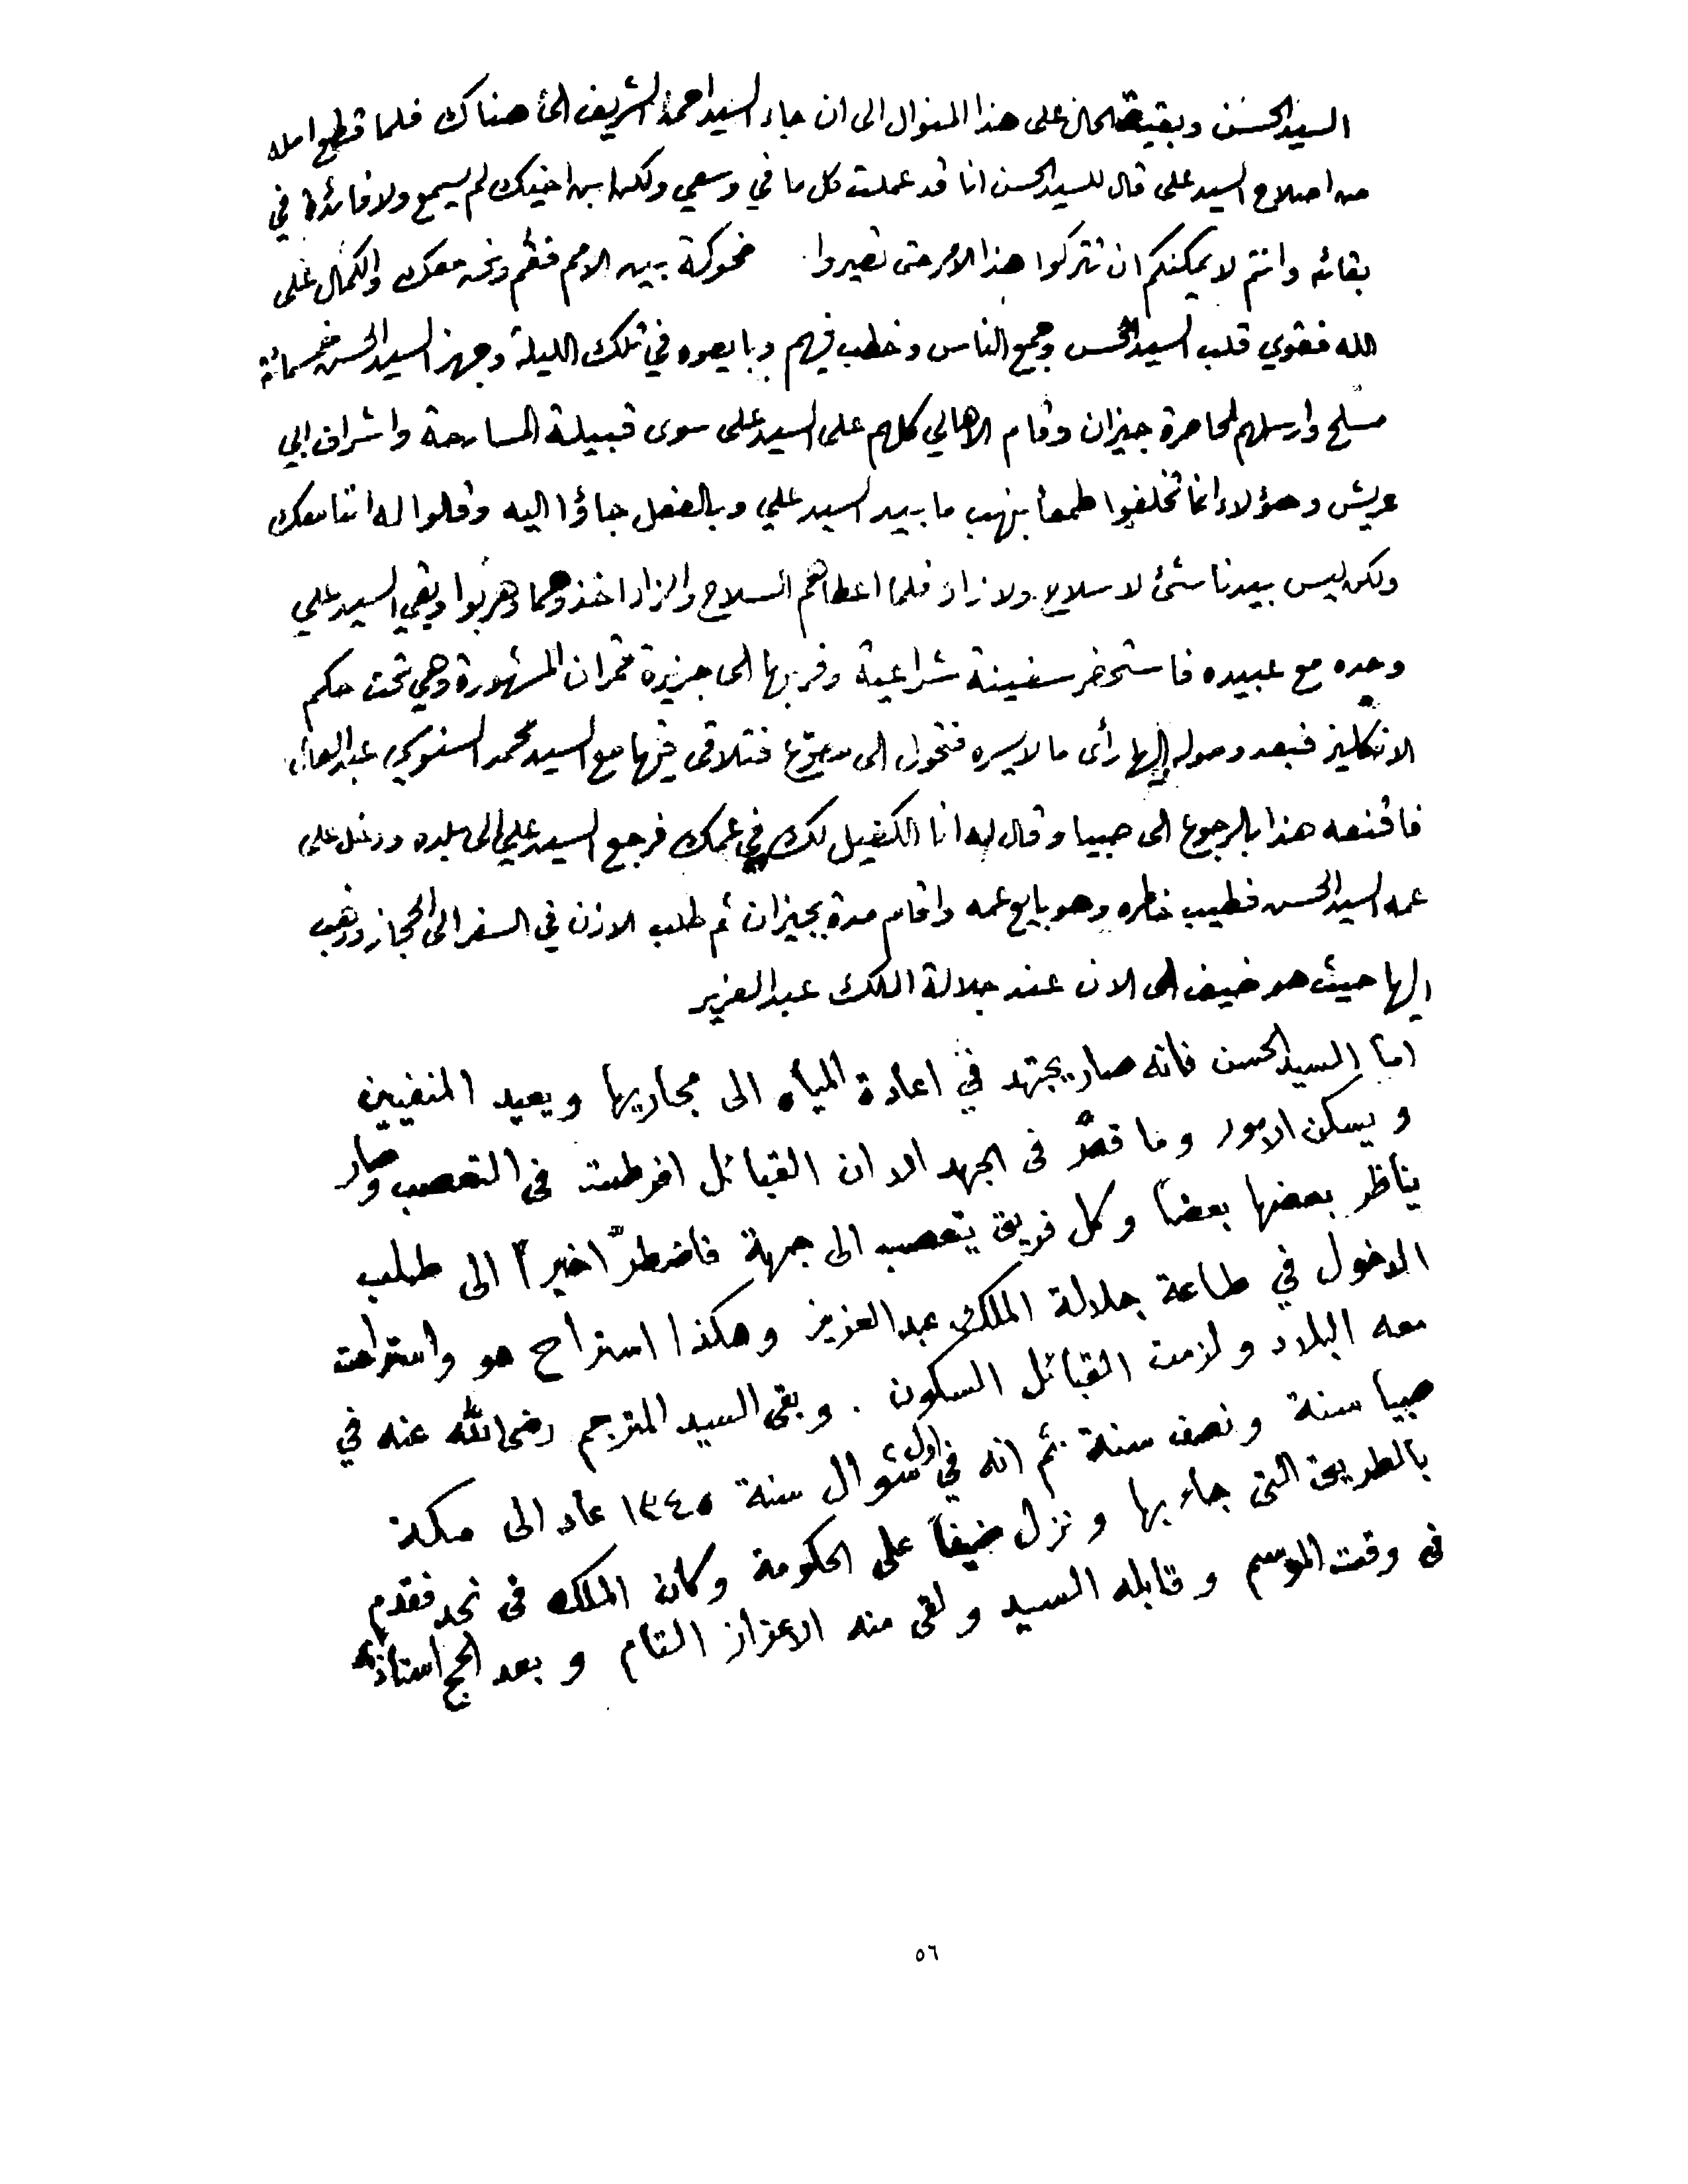 السيد الحسن وبقيت الحال على هذا المنوال الى ان جاء السيد احمد الشريف الى هناك فلما قطع امله
من اصلاح السيد على قال للسيد الحسن انا قد عملت كل ما في وسعي ولكن ابن اخيك لم يسمع ولا فائدة في
بقائه وانتم لا يمكنكم ان تتركوا هذا الامر حتى تصيروا ضحوكة بين الامم فقم ونحن معك والكمال على
الله فقوي قلب السيد الحسن وجمع الناس وخطب فيهم وبايعوه في تلك الليلة وجهز السيد الحسن خمسمائة
مسلح وارسلهم لمحاصرة جيزان وقام الاهالي كلهم على السيد على سوى قبيلة المسارحة واشراف ابي
عريش وهؤلاء انما تخلفوا طمعا بنهب ما بيد السيد علي وبالفعل جاؤا اليه وقالوا له اننا معك
ولكن ليس بيدنا شئ لا سلاح ولا زاد فلما اعطاهم السلاح والزاد اخذوهما وهربوا وبقي السيد علي
وحده مع عبيده فاستحضر سفينة شراعية وفر بها الى جزيرة قمران المشهورة وهي تحت حكم
الانكليز فبعد وصوله اليها رأى ما لا يسره فتحول الى مصوع فتلاقى فيها مع السيد محمد السنوسي عبد العال
فاقنعه هذا بالرجوع الى صبيا وقال له انا الكفيل لك في عمك فرجع السيد علي الى بلده ودخل على
عمه السيد الحسن فطيب خاطره وهو بايع عمه واقام مدة بجيزان ثم طلب الاذن في السفر الى الحجاز وذهب
اليها حيث هو ضيف الى الان عند جلالة الملك عبد العزيز
اما السيد الحسن فانه صار يجتهد في اعادة المياه الى مجاريها ويعيد المنفيين
ويسكن الامور وما قصّر فى الجهد الا ان القبائل افرطت فى التعصب وصار
يناظر بعضها بعضاً وكل فريق يتعصب الى جهة فاضطرّ اخيراً الى طلب
الدخول في طاعة جلالة الملك عبد العزيز وهكذا استراح هو واستراحت
معه البلاد ولازمت القبائل السكون . وبقى السيد المترجم رضى الله عنه في
صبيا سنة ونصف سنة ثم انه في اول شوال سنة ١٣٤٥ عاد الى مكة
بالطريق التى جاء بها ونزل ضيفاً على الحكومة وكان الملك فى نجد فقدم
فى وقت الموسم وقابله السيد ولقى منه الاعزاز التام وبعد الحج استاذنه
٥٦